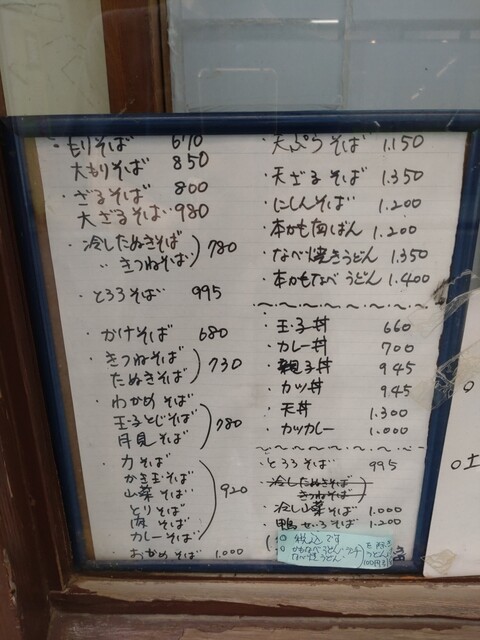 もりそば 670
大もりそば 850
・ざるそば 800
大ざるそば 980
・冷したぬきそば
〃 きつねそば ) 780
・とろろそば 995
・かけそば 680
・きつねそば
たぬきそば ) 730
・わかめそば
玉子とじそば
月見そば ) 780
・力そば
かき玉そば
山菜そば
とりそば
肉そば
カレーそば ) 920
おかめそば 1.000
・天ぷらそば 1.150
・天ざるそば 1.350
・にしんそば 1.200
・本かも南ばん 1.200
・なべ焼きうどん 1.350
・本かもなべうどん 1.400
・玉子丼 660
・カレー丼 700
・親子丼 945
・カツ丼 945
・天丼 1.300
・カツカレー 1.000
・とろろそば 995
・冷したぬきそば
きつねそば
冷し山菜そば 1.000
・鴨せいろそば 1.200
税込です
かもなべうどん
なべ焼うどん